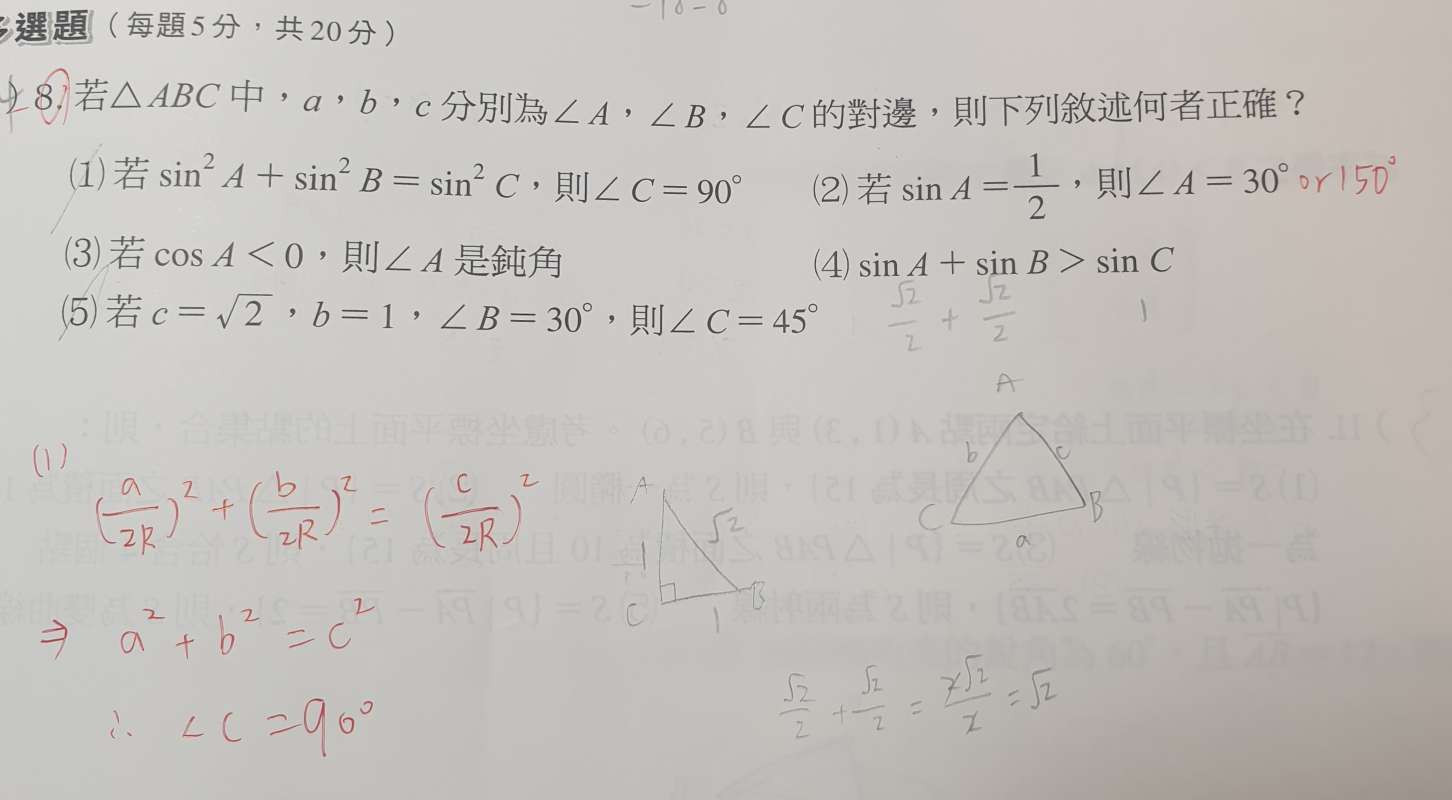 選題（每題5分，共20分）
8. 若△ABC中，a，b，c分別為∠A，∠B，∠C的對邊，則下列敘述何者正確？
(1)若 sin² A＋sin² B＝sin² C，則∠C＝90° (2)若 sin A＝1/2，則∠A＝30° or 150°
(3)若 cos A＜0，則∠A是鈍角 (4) sin A＋sin B＞sin C
(5)若 c＝√2，b＝1，∠B＝30°，則∠C＝45°
√2/2 + √2/2 1
A
b c
C B
a
(1)
(a/2R)² + (b/2R)² = (c/2R)²
A
√2
1
C B
1
⇒ a² + b² = c²
√2/2 + √2/2 = 2√2/2 = √2
∴ ∠C = 90°